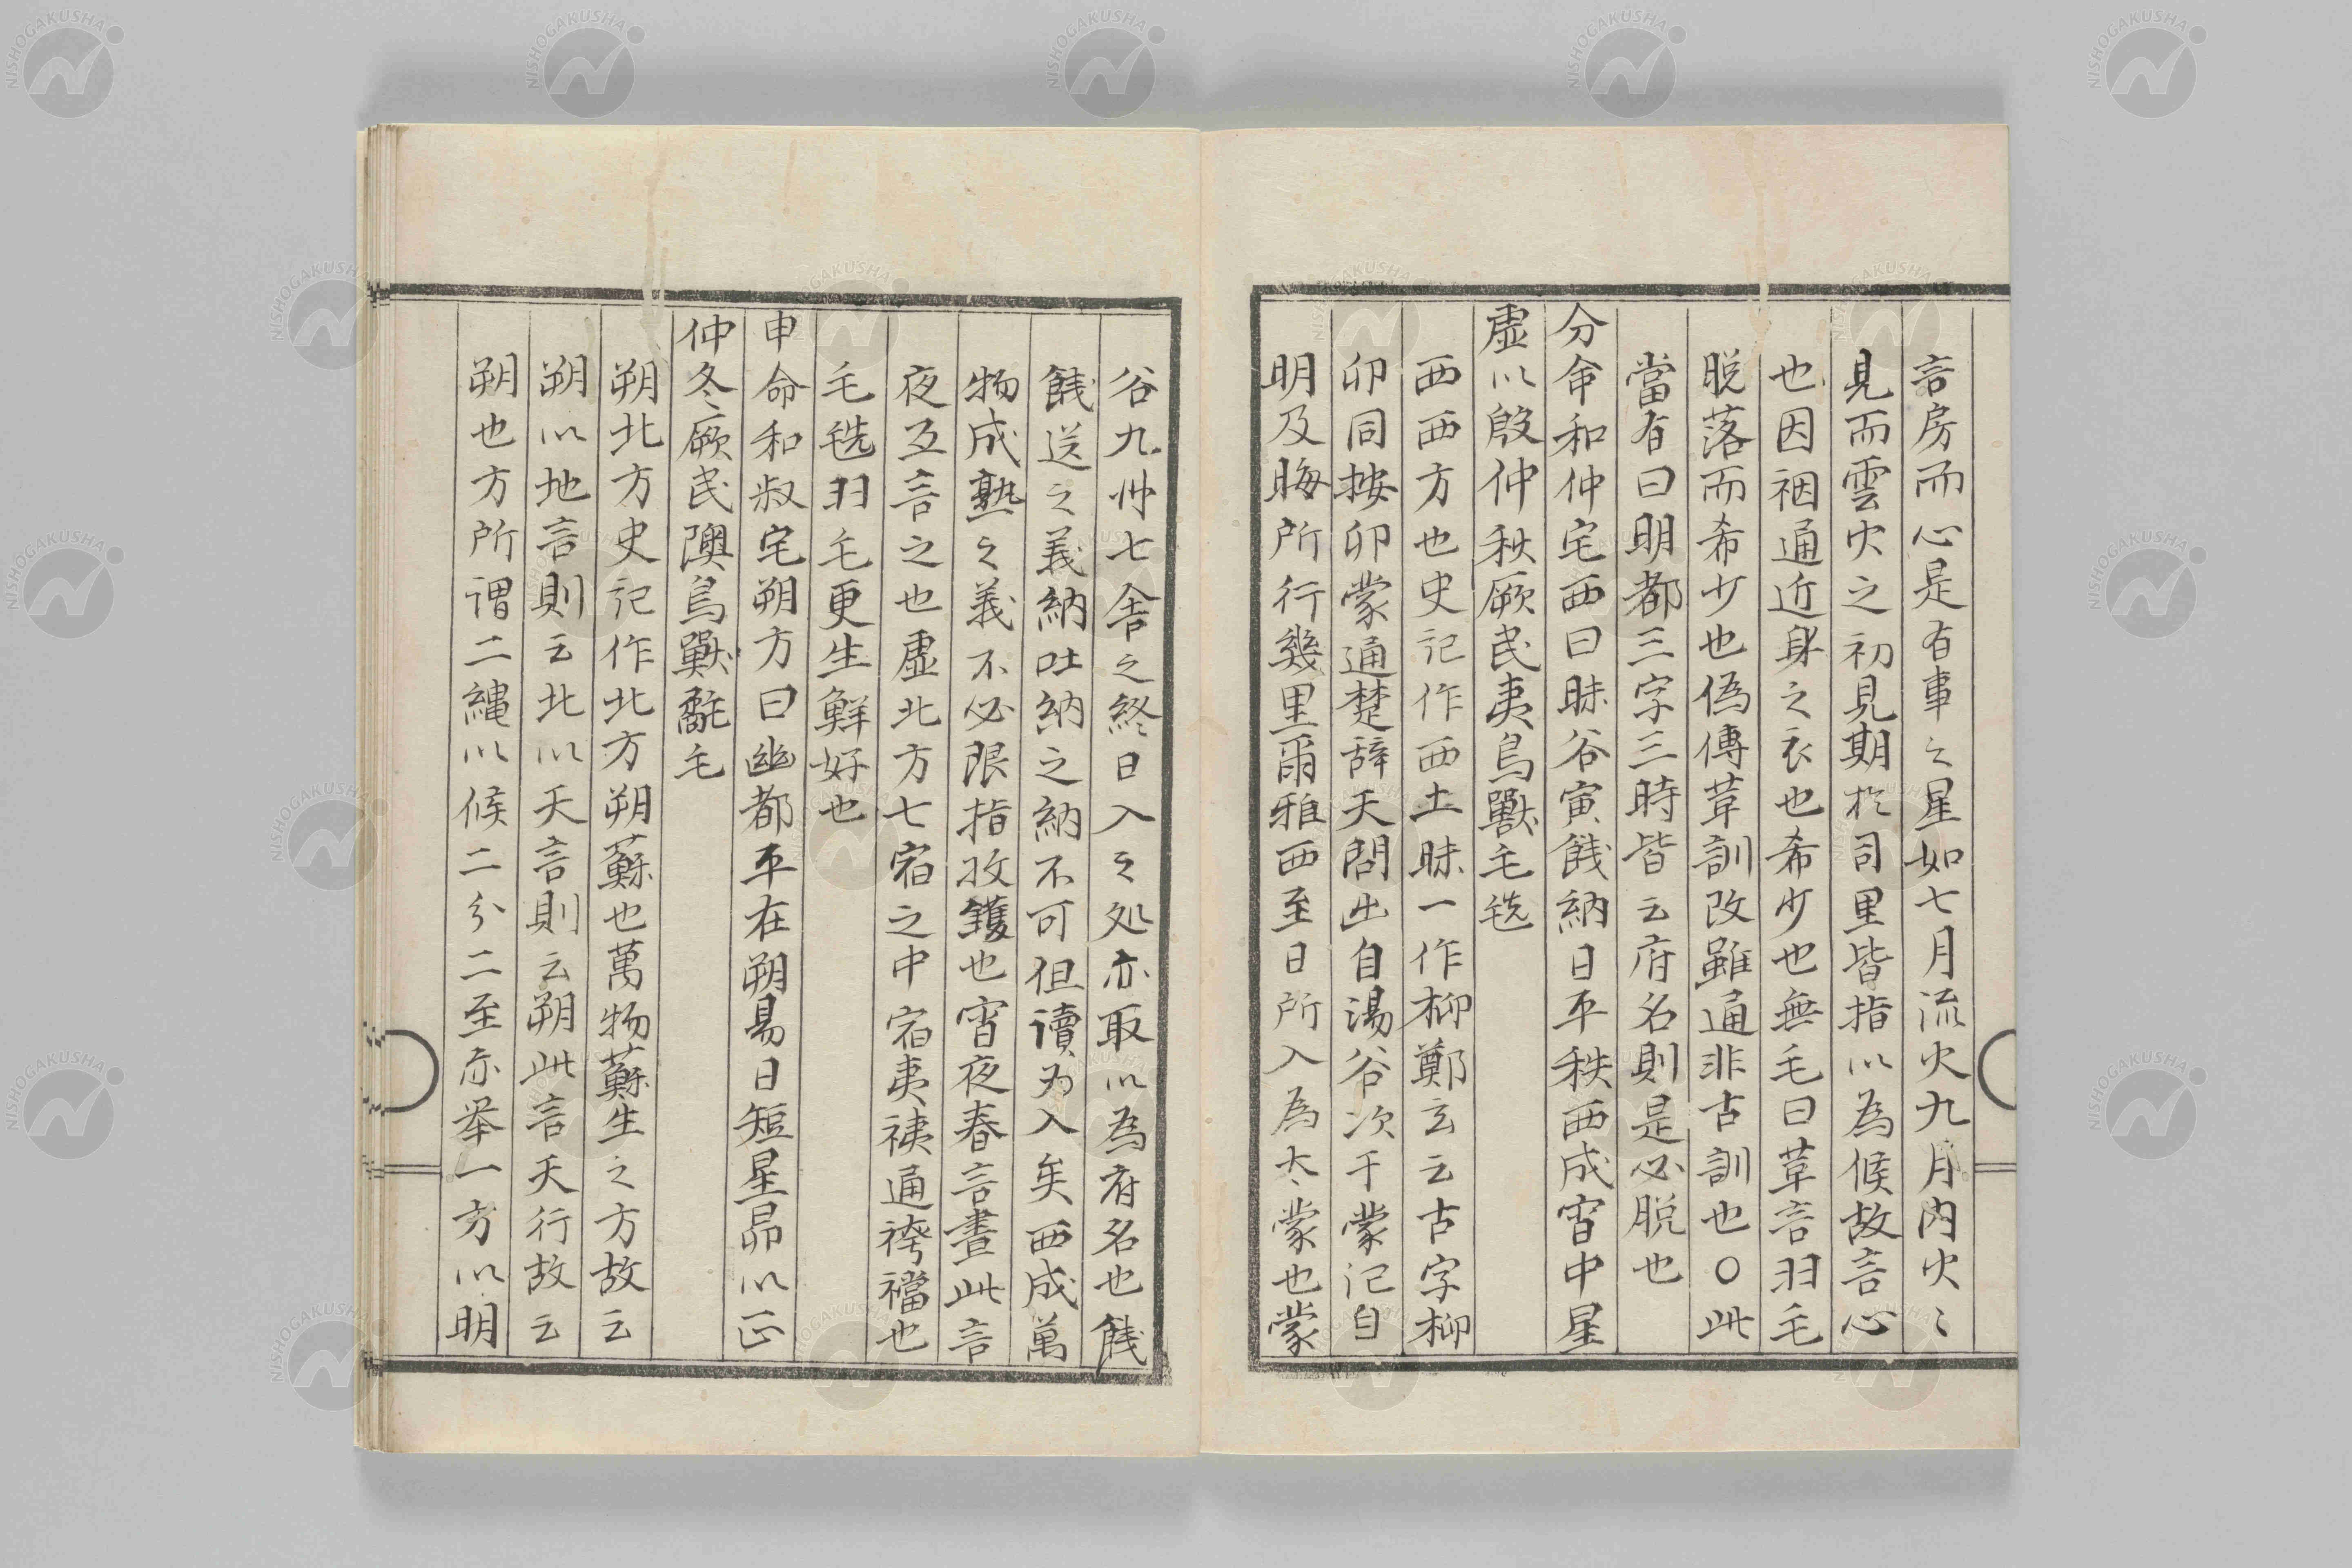 言房而心是有事之星如七月流火九月內火〻
見而雲火之初見期於司里皆指以為候故言心
也因䄄通近身之衣也希少也無毛曰草言羽毛
脱落而希少也偽傳革訓改雖通非古訓也〇此
當有曰明都三字三時皆云府名則是必脱也
分命和仲宅西曰昧谷寅餞納日平秩西成宵中星
虛以殷仲秋厥民夷鳥獸毛毨
西西方也史記作西土昧一作柳鄭玄云古字柳
卯同按卯蒙通楚辞天問出自湯谷次于蒙汜自
明及晦所行幾里爾雅西至日所入為太蒙也蒙
谷九州七舍之終日入之処亦取以為府名也餞
餞送之義納吐納之納不可但讀为入矣西成萬
物成熟之義不必限指收鑊也宵夜春言晝此言
夜互言之也虛北方七宿之中宿夷䄺通袴襠也
毛毨羽毛更生鮮好也
申命和叔宅朔方曰幽都平在朔易日短星昴以正
仲冬厥民隩鳥獸氄毛
朔北方史記作北方朔蘇也萬物蘇生之方故云
朔以地言則云北以天言則云朔此言天行故云
朔也方所謂二繩以候二分二至亦举一方以明